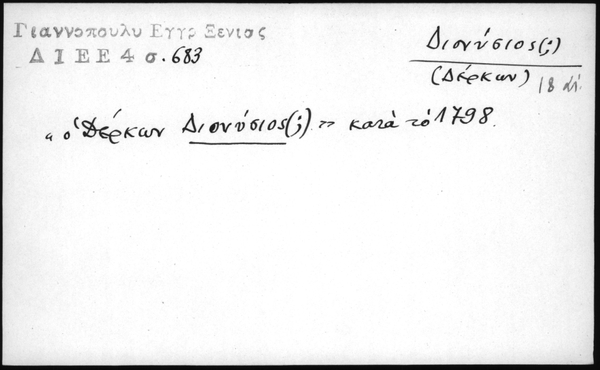 Γιαννοπουλυ Εγγρ Ξενιας
ΔΙΕΕ4 σ. 683
Διονύσιος(;)
(Δέρκων) 18 αἰ.
« ὁ Δέρκων Διονύσιος(;) » κατὰ τὸ 1798.